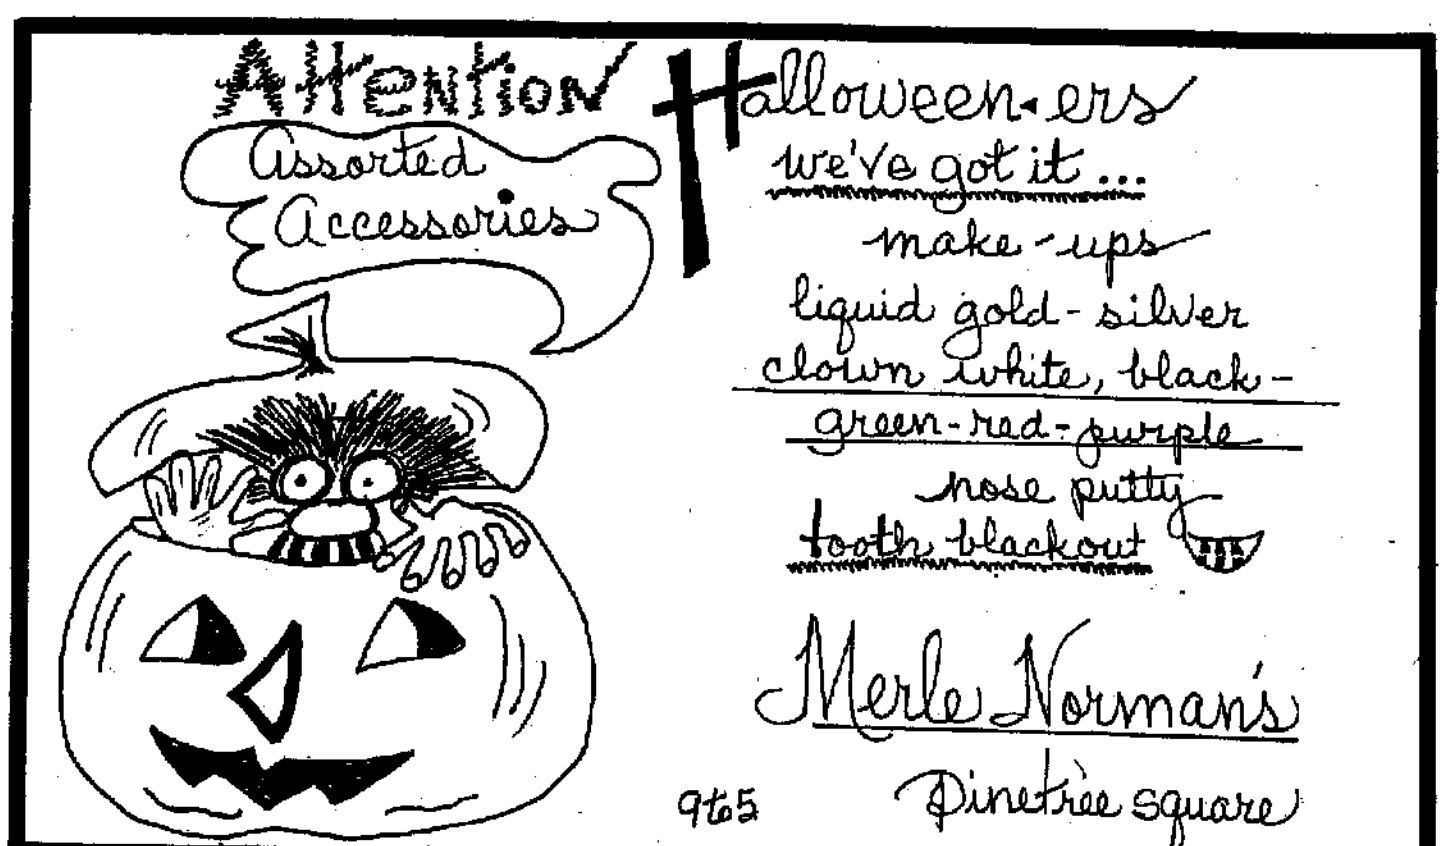 Attention Halloween-ers
Assorted
Accessories
we've got it...
make-ups
liquid gold-silver
clown white, black-
green-red-purple
nose putty
tooth blackout
Merle Norman's
9 to 5
Pinetree square